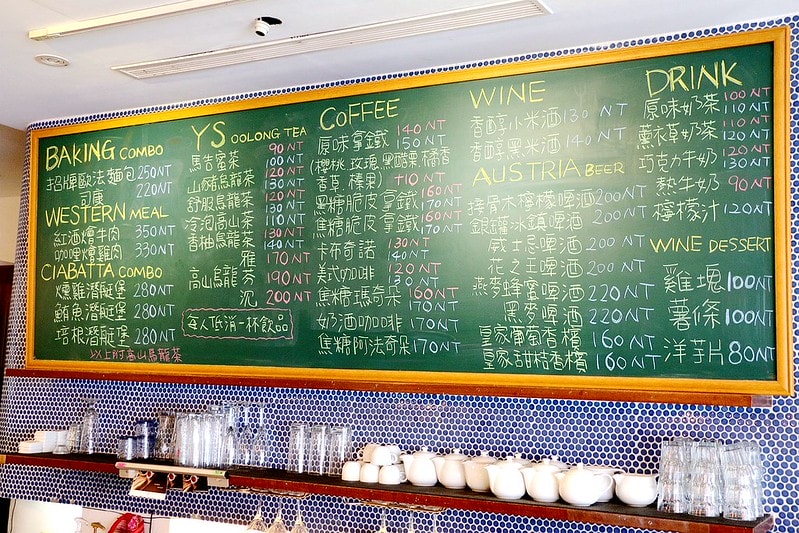 BAKING COMBO
招牌歐法麵包 250NT
可康 220NT
WESTERN MEAL
紅酒燴牛肉 350NT
咖哩燴雞肉 330NT
CIABATTA COMBO
燻雞潛艇堡 280NT
鮪魚潛艇堡 280NT
培根潛艇堡 280NT
以上附高山烏龍茶
YS OOLONG TEA
馬吉蜜茶 90NT
100NT
山豬烏龍茶 120NT
130NT
舒服烏龍茶 120NT
130NT
冷泡高山茶 110NT
120NT
香柚烏龍茶 130NT
140NT
雅 170NT
高山烏龍 芬 190NT
沉 200NT
每人低消一杯飲品
COFFEE
原味拿鐵 140NT
150NT
(櫻桃 玫瑰 黑醋栗 檸香
香草 榛果) +10NT
黑糖脆皮拿鐵 160NT
170NT
焦糖脆皮拿鐵 160NT
170NT
卡布奇諾 130NT
140NT
美式咖啡 120NT
130NT
焦糖瑪奇朵 160NT
170NT
奶酒咖啡 170NT
焦糖阿法奇朵 170NT
WINE
香醇小米酒 130NT
香醇黑米酒 140NT
AUSTRIA BEER
接骨木檸檬啤酒 200NT
銀鑼冰鎮啤酒 200NT
威士忌啤酒 200NT
花之王啤酒 200NT
燕麥蜂蜜啤酒 220NT
黑麥啤酒 220NT
皇家葡萄香檳 160NT
皇家甜桔香檳 160NT
DRINK
原味奶茶 100NT
110NT
薰衣草奶茶 110NT
120NT
巧克力牛奶 120NT
130NT
熱牛奶 90NT
檸檬汁 120NT
WINE DESSERT
雞塊 100NT
薯條 100NT
洋芋片 80NT